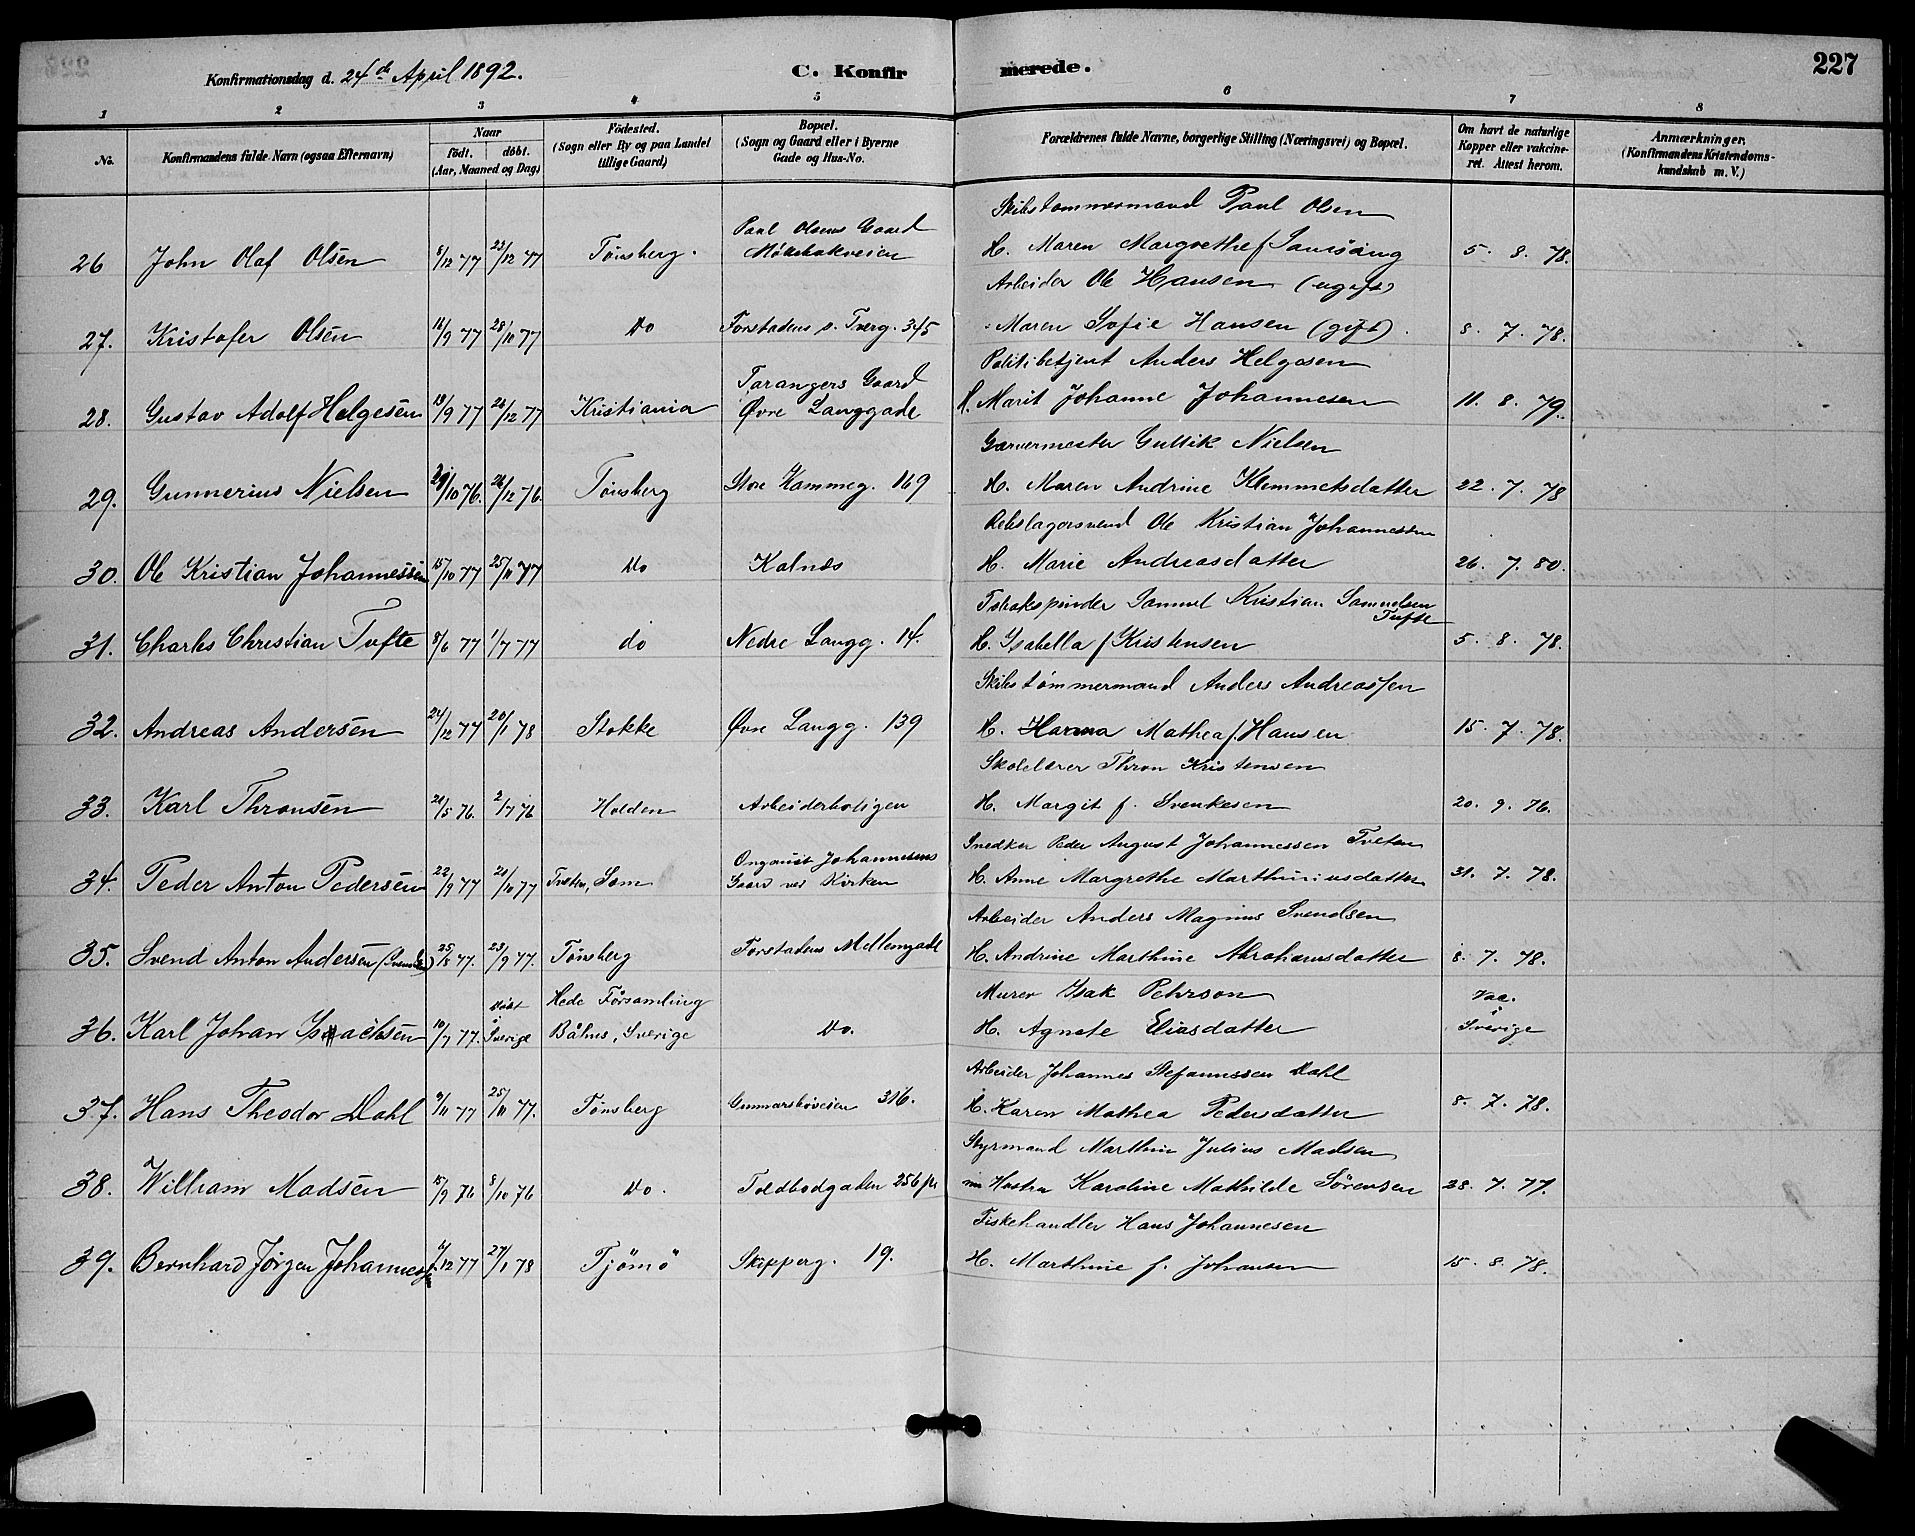 227
Konfirmationsdag d. 24de April 1892. C. Konfirmerede.
1 2 3 4 5 6 7 8
No. Konfirmandens fulde Navn (ogsaa Efternavn) Naar født. døbt. (Aar, Maaned og Dag) Fødested. (Sogn eller By og paa Landet tillige Gaard) Bopæl. (Sogn og Gaard eller i Byerne Gade og Hus-No. Forældrenes fulde Navne, borgerlige Stilling (Næringsvei) og Bopæl. Om havt de naturlige Kopper eller vakcineret. Attest herom. Anmærkninger. (Konfirmandens Kristendomskundskab m. V.)
Paul Olsens Gaard Skibstømmermand Paul Olsen
26 John Olaf Olsen 8/12 77 23/12 77 Tønsberg. H. Maren Margrethe f. 5. 8. 78.
Arbeider Ole Hansen (ugift)
27. Kristofer Olsen 16/9 77 28/10 77 Do Forstadens s. Tverg. 345 Maren Sofie Hansen (gift). 8. 7. 78.
Tarangers Gaard Politibetjent Anders Helgesen
28. Gustav Adolf Helgesen 19/9 77 26/12 77 Kristiania Øvre Langgade H. Marit Johanne Johannesen 11. 8. 79.
Garvermester Gullik Nielsen
29. Gunnerius Nielsen 29/10 76. 26/12 76. Tønsberg Store Kammeg. 169 H. Maren Andrine Klemmetsdatter 22. 7. 78
Rebslagersvend Ole Kristian Johannessen
30. Ole Kristian Johannessen 15/10 77 25/11 77 Do Kalnæs H. Marie Andreasdatter 26. 7. 80.
Tobakspinder Samuel Kristian Samuelsen Tufte
31. Charles Christian Tufte 8/6 77 1/7 77 do Nedre Langg. 14. H. Isabella f. Kristensen 5. 8. 78.
Skibstømmermand Anders Andreassen
32. Andreas Andersen 24/12 77 20/1 78 Stokke Øvre Langg. 139 H. Hanna Mathea f. Hansen 15. 7. 78.
Skolelærer Thron Kristensen
33. Karl Thronsen 21/5 76. 2/7 76 Holden Arbeiderboligen H. Margit f. Svenkesen 20. 9. 76.
Johannesens Snedker Peder August Johannessen Tveten
34. Peder Anton Pedersen 22/9 77 21/10 77 Tveten, Sem Gaard ved Kirken H. Anne Margrethe Marthiniusdatter 31. 7. 78.
Arbeider Anders Magnus Svendsen
35. Svend Anton Andersen (Svendsen) 25/8 77. 23/9 77. Tønsberg Forstadens Mellemgade H. Andrine Marthine Abrahamsdatter 8. 7. 78.
Døbt Hede Församling Murer Isak Pehrson Vac.
36. Karl Johan Isachsen 10/7 77. i Sverige Båhus, Sverige Do. H. Agnete Eliasdatter i Sverige
Arbeider Johannes Stefanussen Dahl
37. Hans Theodor Dahl 9/11 77 25/11 77. Tønsberg Gunnarsbøveien 316. H. Karen Mathea Pedersdatter 8. 7. 78.
Styrmand Marthin Julius Madsen
38. William Madsen 15/9 76 8/10 76 Do. Toldbodgaden 256 Hustru Karoline Mathilde Sørensen 28. 7. 77.
Fiskehandler Hans Johannesen
39. Bernhard Jørgen Johannessen 6/12 77 27/1 78 Tjømø Skipperg. 19. H. Marthine f. Johansen 15. 8. 78.